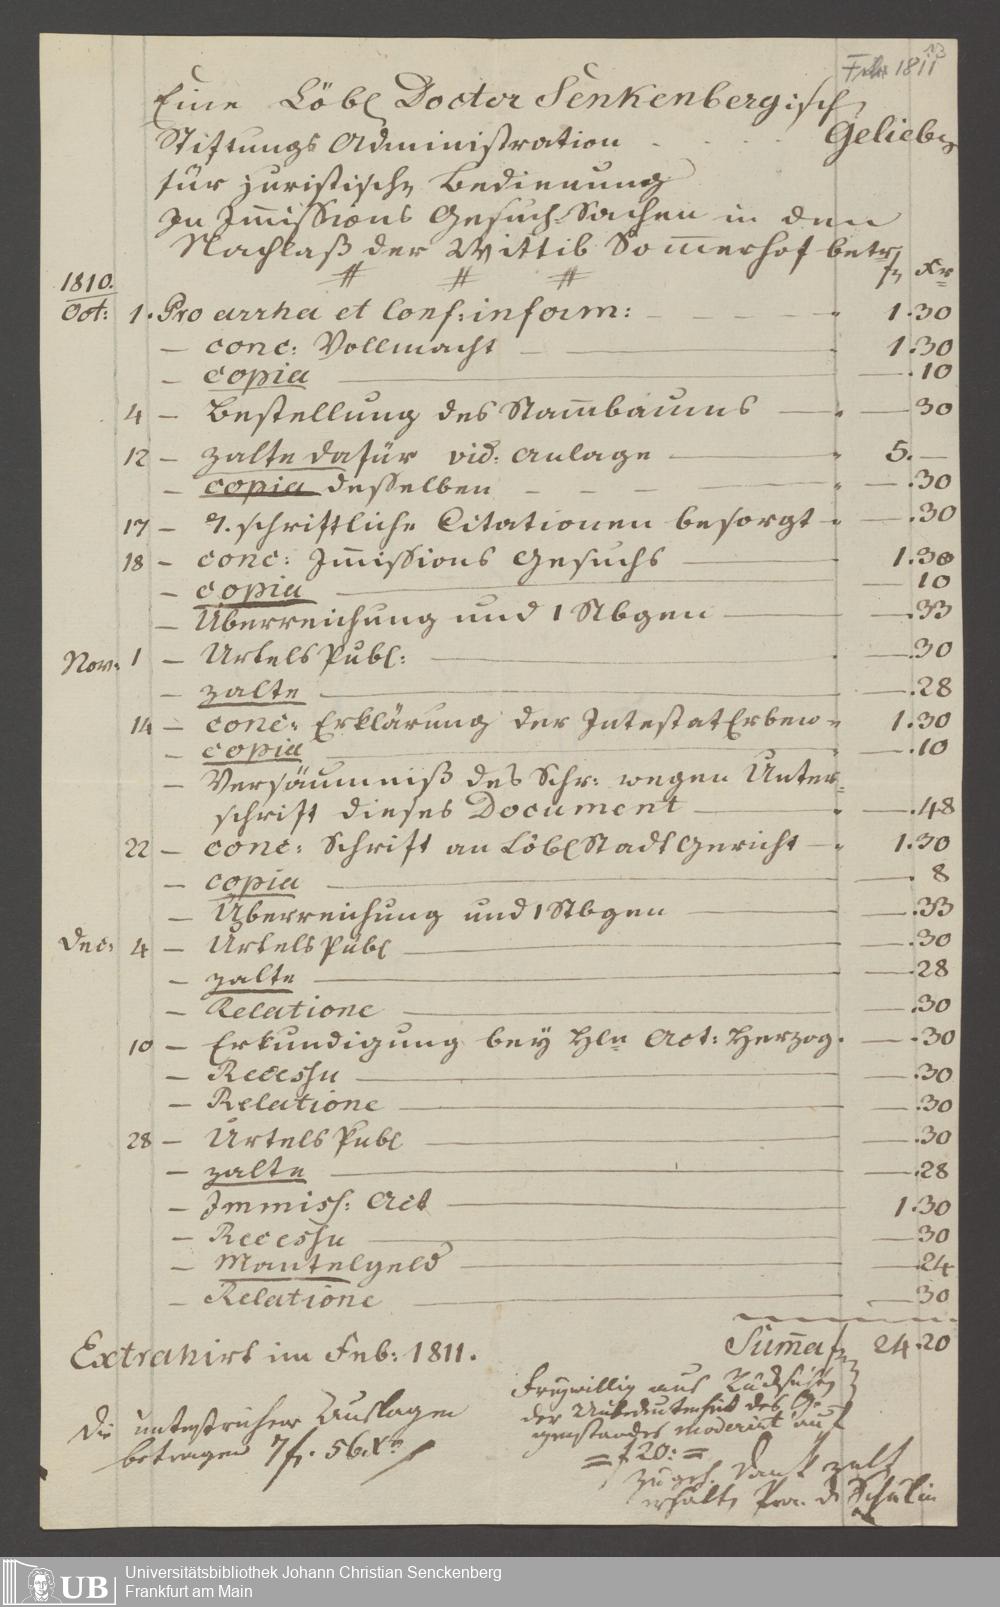 Febr 1811
13
Eine Löbl Doctor Senkenbergisch
Stiftungs Administration . . . . Geliebe
für juristische Bedienung
In Im̅issions Gesuch-Sachen in den
Nachlaß der Wittib Som̅erhof betr.
fl Xr
1810.
Oct: 1. Pro arrha et Conf: inform: 1.30
— conc: Vollmacht 1.30
— copia — .10
4 — Bestellung des Stam̅baums — 30
12 — zalte dafür vid: anlage 5. —
— copia desselben — .30
17 — 7. schriftliche Citationen besorgt — .30
18 — conc: Im̅issions Gesuchs 1.30
— copia — 10
— Überreichung und 1 Stbgen — .33
Nov: 1 — Urtels Publ: — .30
— zalte — .28
14 — conc: Erklärung der Intestat Erben 1.30
— copia — .10
— Versäumniß des Schr: wegen Unter-
schrift dieses Document — .48
22 — conc: Schrift an Löbl Stadt Gericht 1.30
— copia — . 8
— Überreichung und 1 Stbgen — .33
Dec: 4 — Urtels Publ — .30
— zalte — 28
— Relatione — .30
10 — Erkundigung bey Hln Act: Herzog. — .30
— Recessu — .30
— Relatione — .30
28 — Urtels Publ — .30
— zalte — .28
— Immiss: Act 1.30
— Recessu — 30
— Mantelgeld — 24
— Relatione — .30
Sum̅a fl 24.20
Extrahirt im Feb: 1811.
Die unterstrichene Auslagen
betragen 7 fl. 56 Xr
Freywillig aus Rücksicht
der Unbedeutenheit des Ge-
genstandes moderirt auf
= f 20: =
zu geh. Dank zalt
erhalten Pra. Dr Schulin
Universitätsbibliothek Johann Christian Senckenberg
Frankfurt am Main
UB